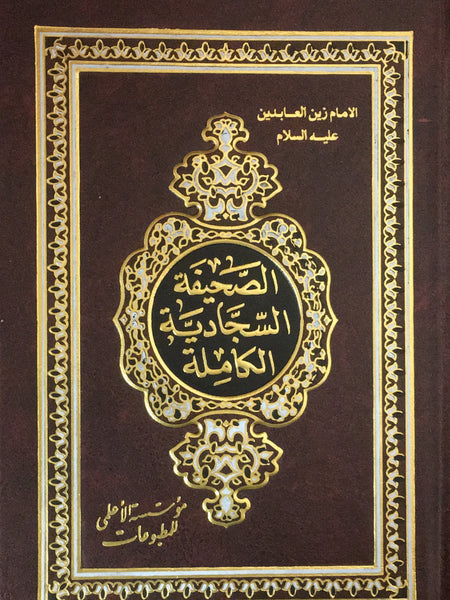 الامام زين العابدين
عليه السلام
الصَّحيفَة
السجَّاديَّة
الكامِلة
مؤسسة الأعلمي
للمطبوعات